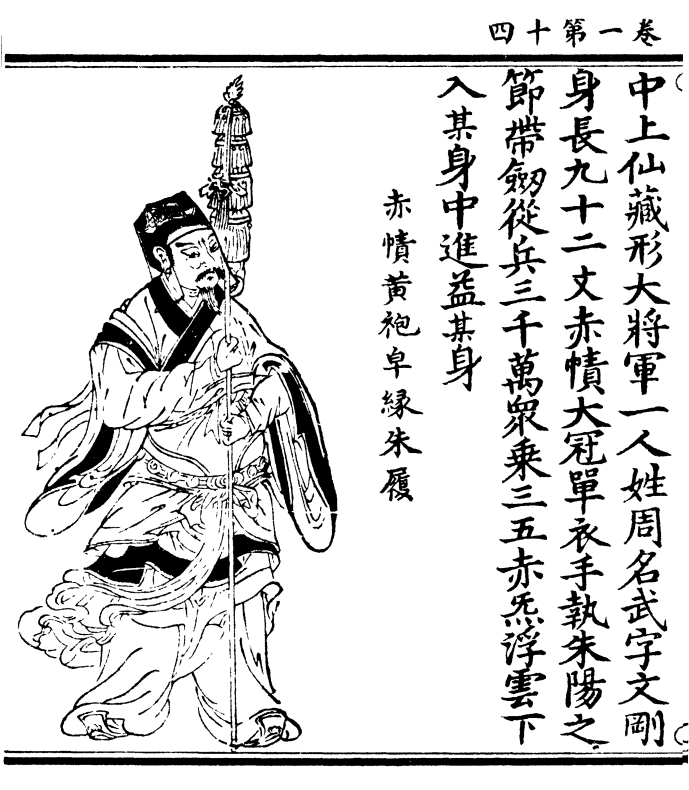 卷一第十四
中上仙藏形大將軍一人姓周名武字文剛
身長九十二丈赤幘大冠單衣手執朱陽之
節帶劒從兵三千萬衆乗三五赤炁浮雲下
入某身中進益某身
赤幘黄袍皁緣朱履